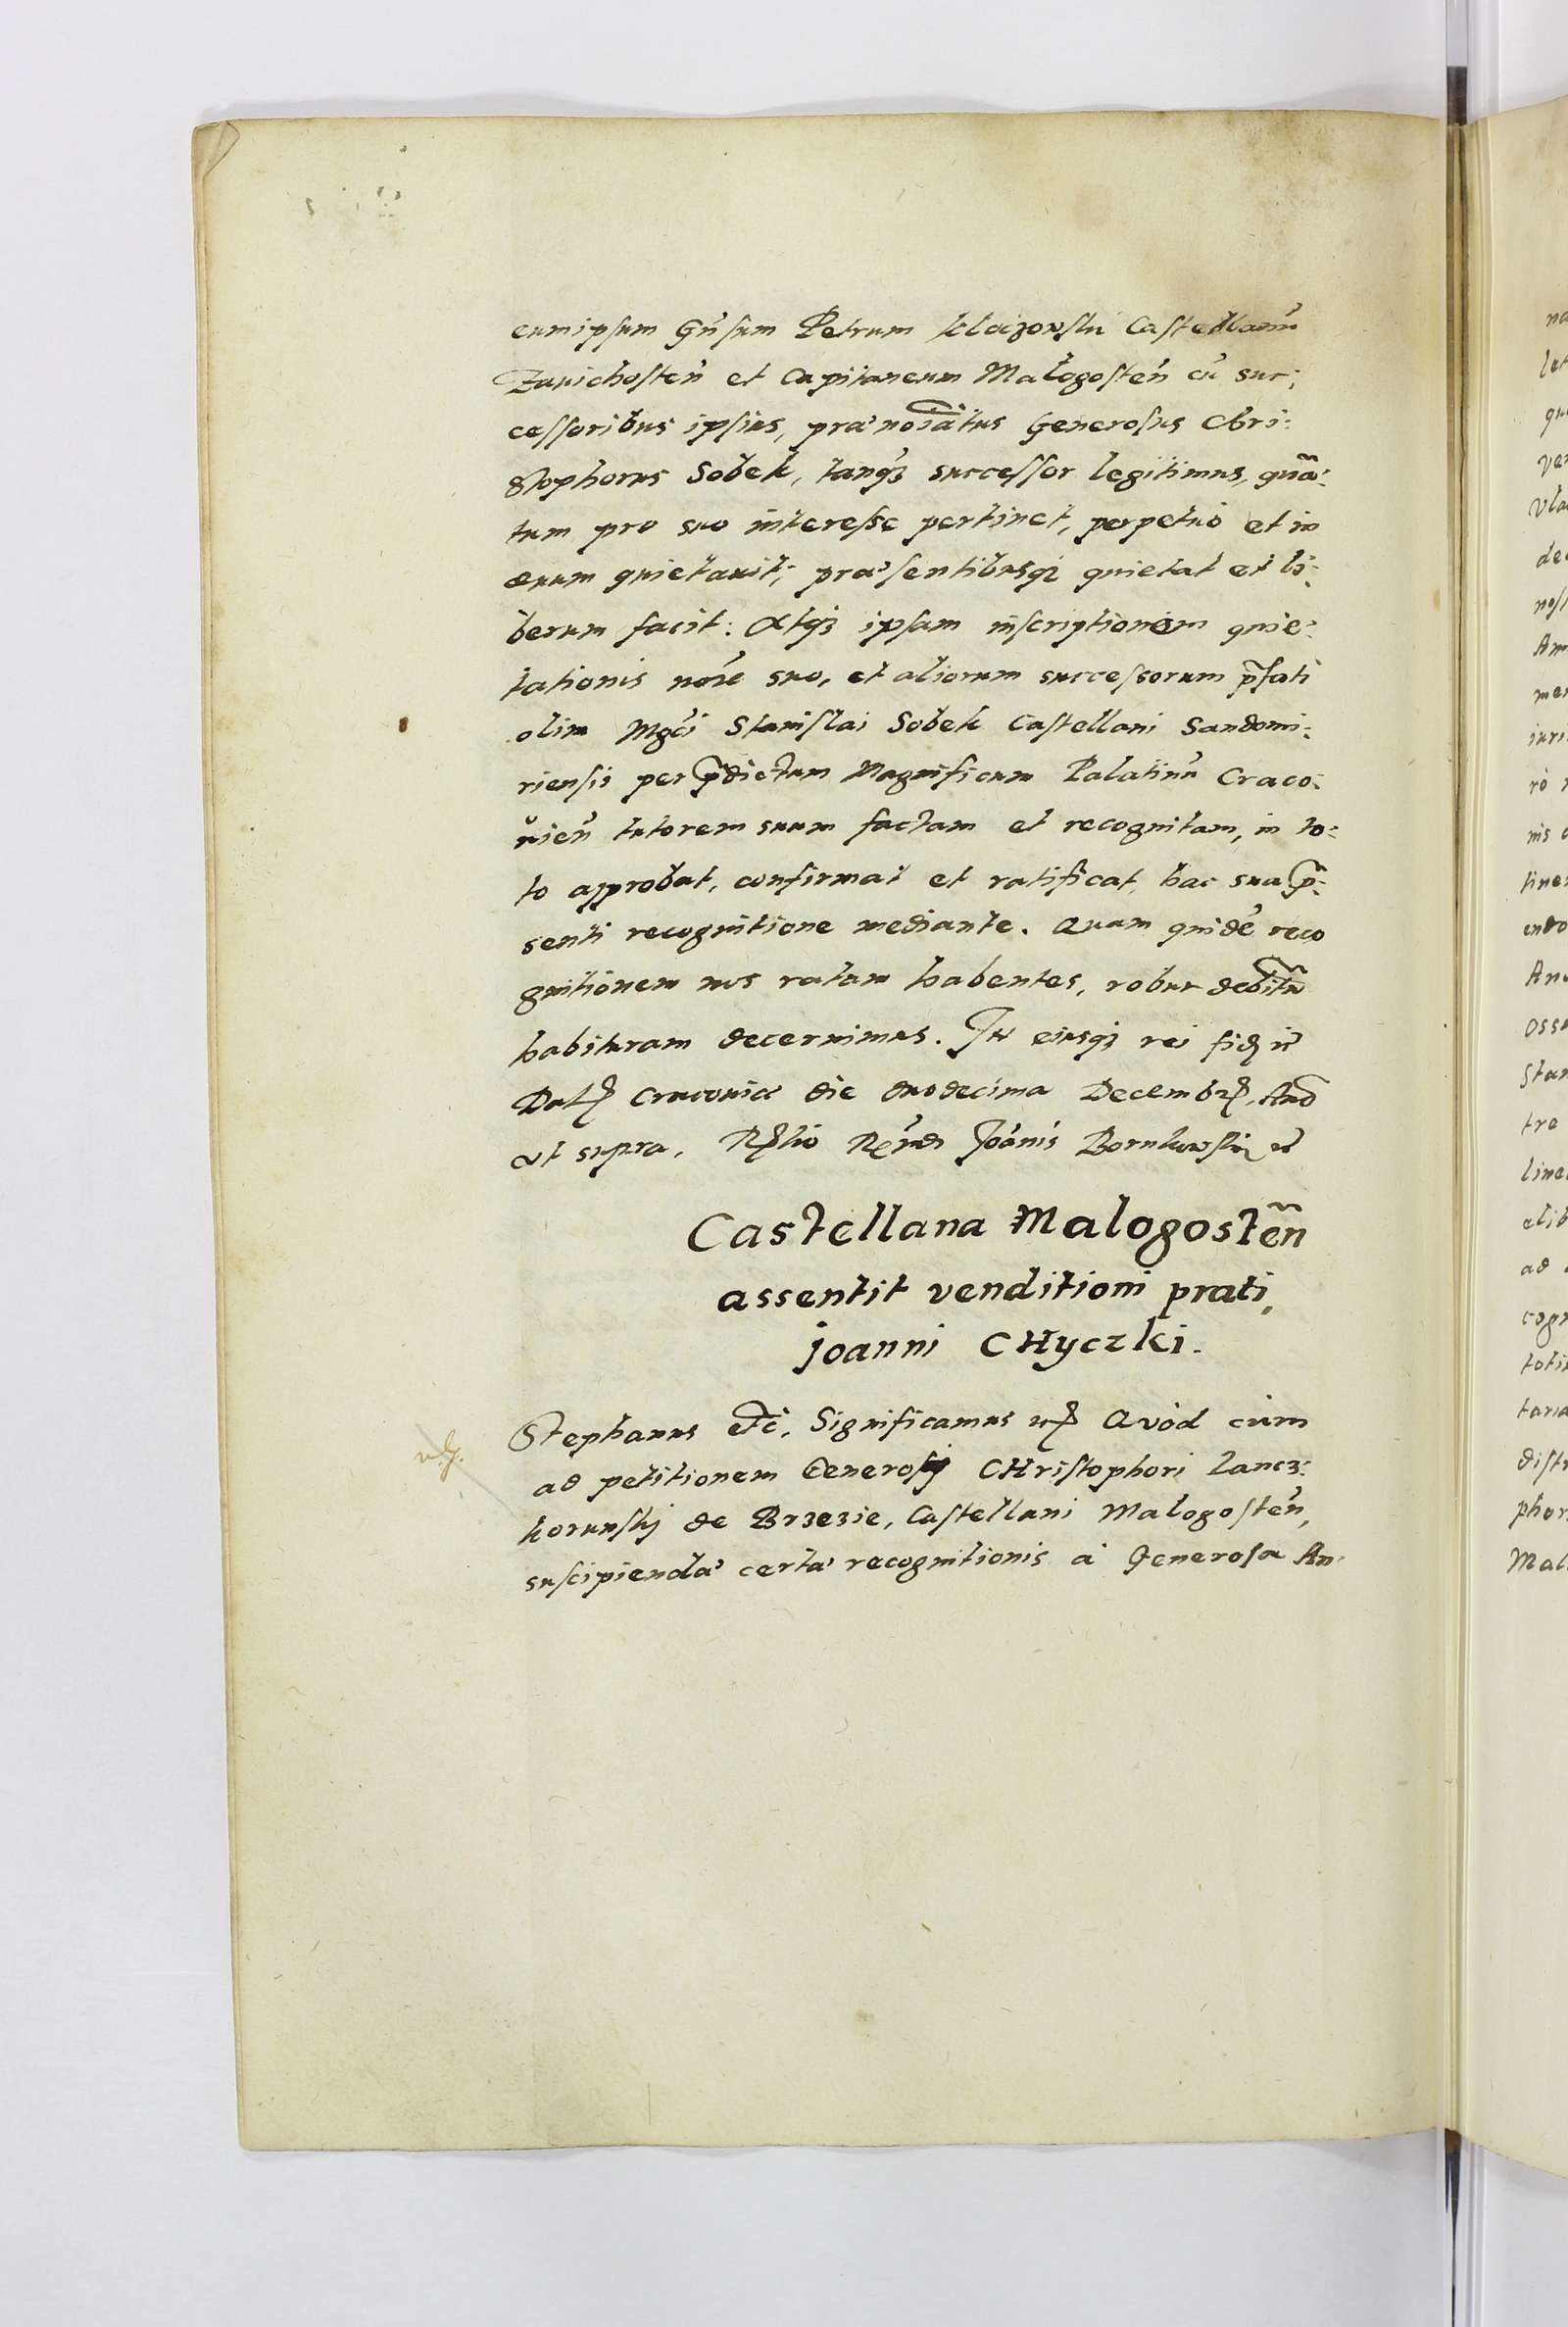 eumipsum Gñsum Petrum Kloczowski Castellanũ
Zauichosteñ et Capitaneum Malogosteñ cũ suc:
cessoribus ipsius, præ noiãtus Generosus Chri:
stophorus Sobek, tanqȝ successor legitimus, quã:
tum pro suo interesse pertinet, perpetuò et in
æuum quietauit, præsentibusqȝ quietat et li:
berum facit: Atqȝ ipsam inscriptionem quie:
tationis nõie suo, et aliorum successorum p̃fati
olim Mgci Stanislai Sobek Castellani Sandomi:
riensis per p̃dictum Magnificum Palatinũ Craco:
uieñ tutorem suum factam et recognitam, in to:
to approbat, confirmat et ratificat, hac sua p̃:
senti recognitione mediante. Quam quidẽ reco
gnitionem nos ratam habentes, robur debitũ
habituram decernimus. In eiusqȝ rei fidȩ
Datȩ Cracouiæ die duodecima Decembrȩ, Ano
ut supra. Rȩlio Rẽndi Joãnis Borukowski
Castellana Malogosteñ
assentit venditioni prati,
joanni CHyczki.
Stephanus etc̃. Significamus Quòd cùm
ad petitionem Generosij CHristophori Lancz:
korunskj de Brzezie, Castellani Malogosteñ,
suscipiendæ certæ recognitionis à Generosa An